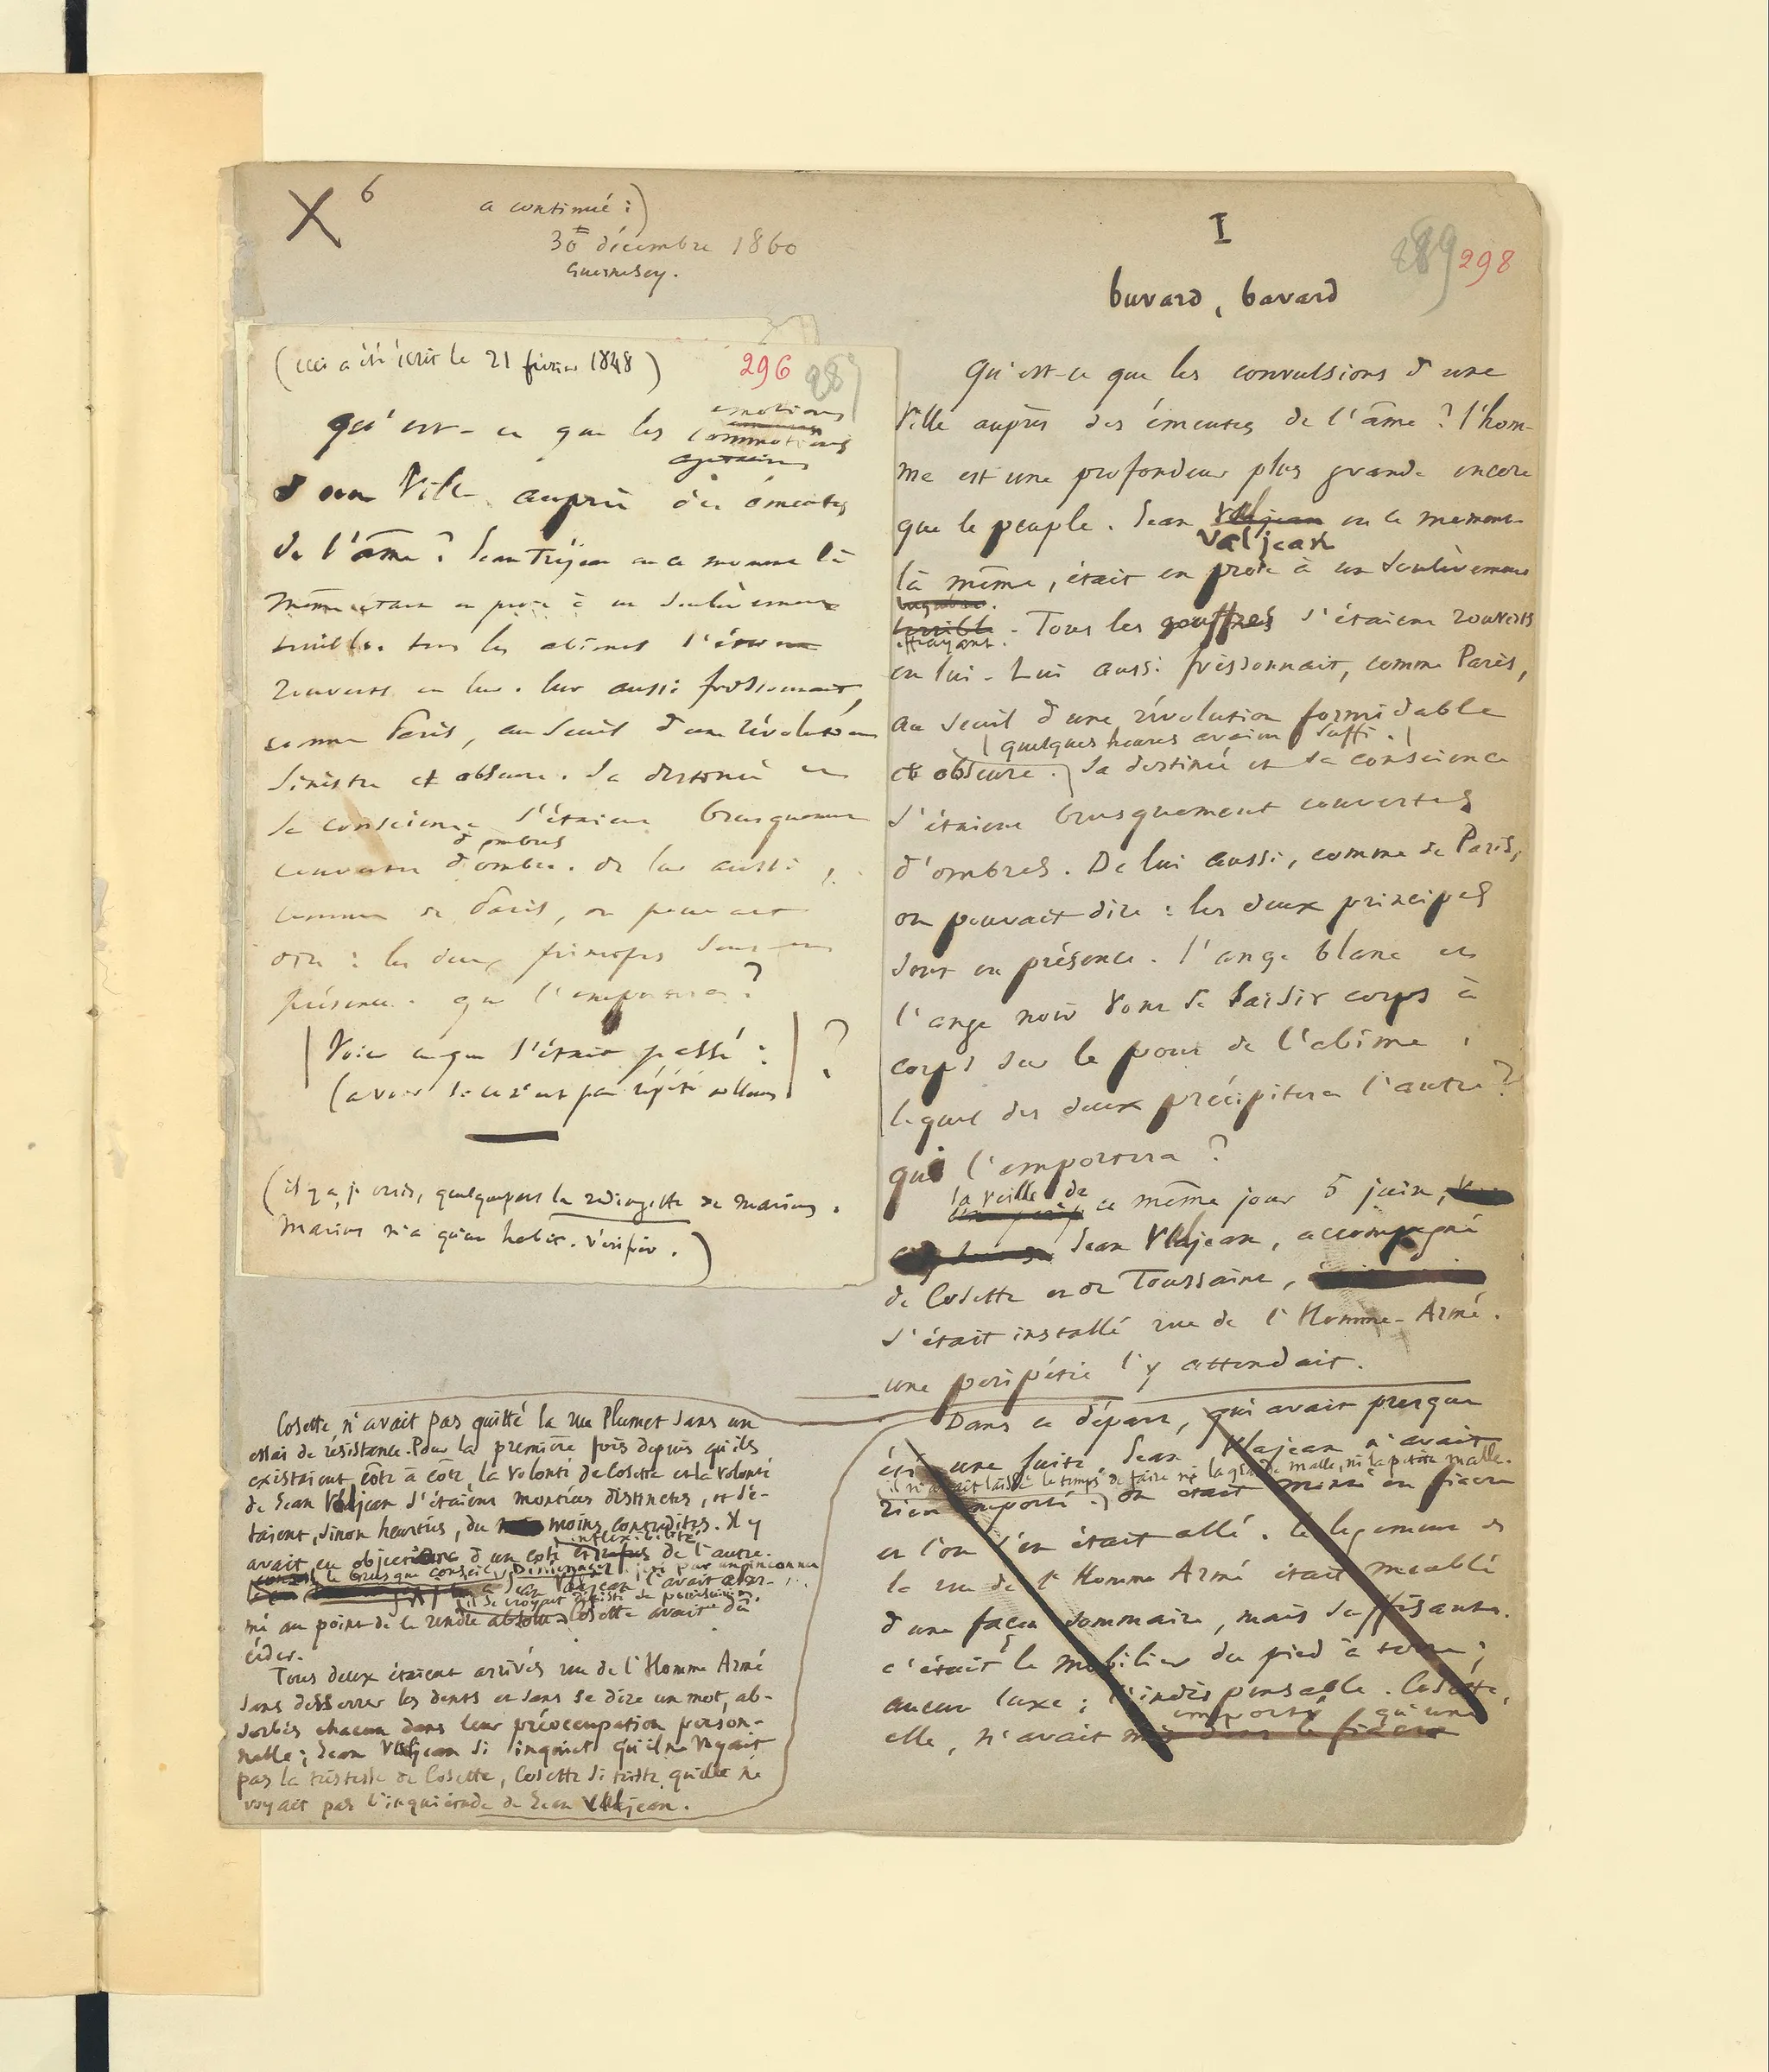 X 6
a continué :)
30 décembre 1860
Guernesey.
(ceci a été écrit le 21 février 1848)
296 287
qu'est-ce que les
émotions
commotions
agitations
d'une ville auprès des émeutes
de l'âme? Jean Tréjean en ce moment là
même était en proie à un soulèvement
terrible. tous les abîmes s'étaient
rouverts en lui. lui aussi frissonnait,
comme Paris, au seuil d'une révolution
sinistre et obscure. Sa destinée et
sa conscience s'étaient brusquement
d'ombres
couvertes d'ombre. de lui aussi,
comme de Paris, on pouvait
dire : les deux principes sont en
présence. qui l'emportera?
Voici ce qui s'était passé : ?
(avoir si ce n'est pas répété ailleurs
(il y a, je crois, quelquepart la redingotte de Marius.
Marius n'a qu'un habit. vérifier.)
I
289 298
buvard, bavard
Qu'est-ce que les convulsions d'une
ville auprès des émeutes de l'âme? l'hom-
me est une profondeur plus grande encore
que le peuple. Jean Vlajean en ce moment
Valjean
là même, était en proie à un soulèvement
terrible. Tous les gouffres s'étaient rouverts
effrayant.
en lui. Lui aussi frissonnait, comme Paris,
au seuil d'une révolution formidable
quelques heures avaient suffi.
et obscure. Sa destinée et sa conscience
s'étaient brusquement couvertes
d'ombres. De lui aussi, comme de Paris,
on pouvait dire : les deux principes
sont en présence. l'ange blanc et
l'ange noir vont se saisir corps à
corps sur le pont de l'abîme.
lequel des deux précipitera l'autre?
qui l'emportera?
la veille de
ce même jour 5 juin,
Jean Vlajean, accompagné
de Cosette et de Toussaint,
s'était installé rue de l'Homme-Armé.
une péripétie l'y attendait.
Dans ce départ, qui avait presque
été une fuite, Jean Vlajean n'avait
(il n'avait laissé le temps de faire ni la grande malle, ni la petite malle.
rien emporté.) on était monté en fiacre
et l'on s'en était allé. le logement de
la rue de l'Homme Armé était meublé
d'une façon sommaire, mais suffisante.
c'était le mobilier du pied à terre ;
aucun luxe ; l'indispensable. Cosette,
emporté qu'une
elle, n'avait mis dans le fiacre
Cosette n'avait pas quitté la rue Plumet sans un
essai de résistance. Pour la première fois depuis qu'ils
existaient côte à côte, la volonté de Cosette et la volonté
de Jean Valjean s'étaient montrées distinctes, et s'é-
taient, sinon heurtées, du moins contredites. Il y
inflexibilité
avait eu objection d'un côté et refus de l'autre.
le brusque conseil : Déménagez jeté par un inconnu
à Jean Valjean l'avait alar-
il se croyait dépisté et poursuivi.
mé au point de le rendre absolu. Cosette avait dû
céder.
Tous deux étaient arrivés rue de l'Homme Armé
sans desserrer les dents et sans se dire un mot, ab-
sorbés chacun dans leur préoccupation person-
nelle ; Jean Valjean si inquiet qu'il ne voyait
pas la tristesse de Cosette, Cosette si triste qu'elle ne
voyait pas l'inquiétude de Jean Valjean.